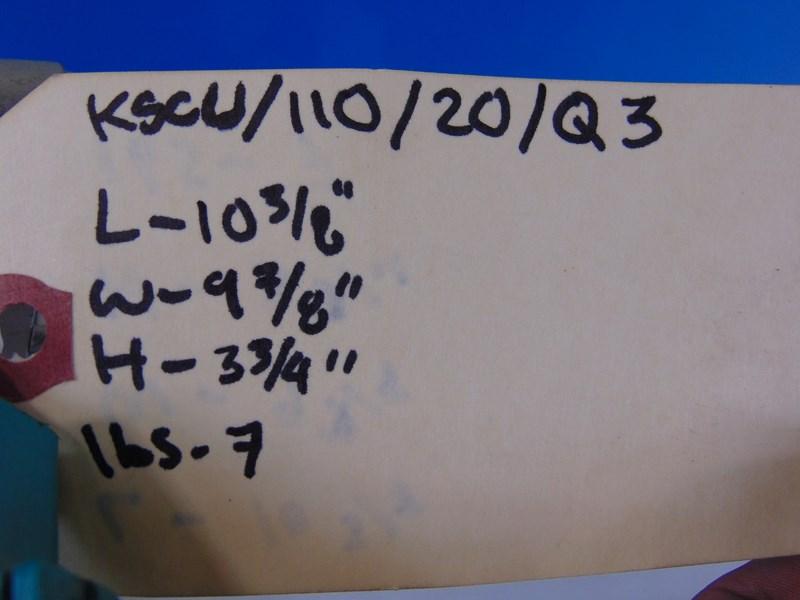 KSCU/110/20/Q3
L-10 3/8"
W-9 7/8"
H-3 3/4"
lbs.7